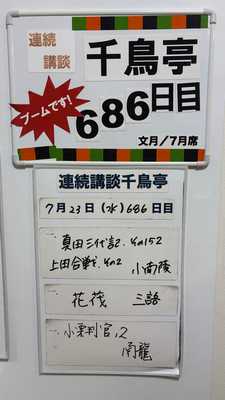 連続
講談
千鳥亭
ブームです!
686日目
文月／7月席
連続講談千鳥亭
7月23日(水)686日目
一、真田三代記.その152
上田合戦その2 小南陵
一、花筏 三語
一、小栗判官12
南龍